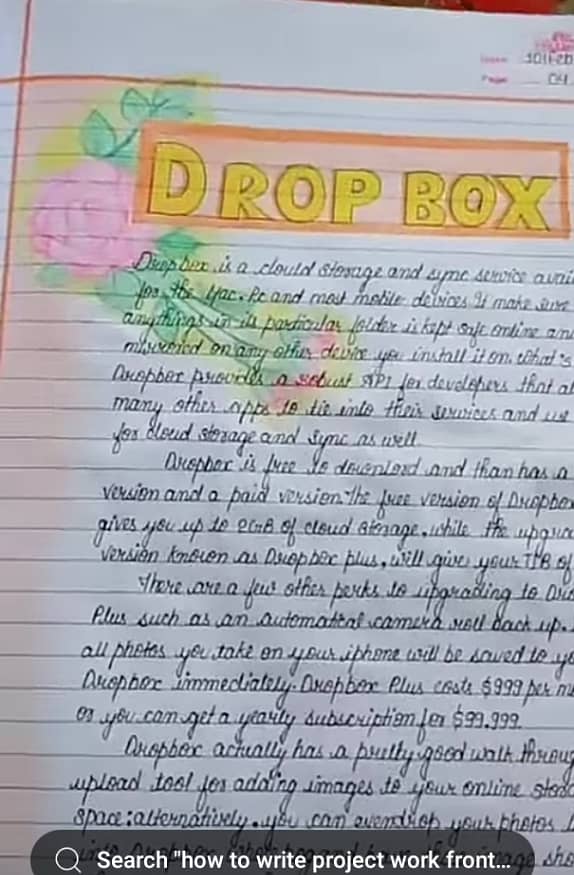 04
DROP BOX
Dropbox is a clould storage and sync service avai
for the Mac. Pc and most mobile devices It make sure
anythings in its particular folder is kept safe online an
mirrored on any other device you install it on. What's
Dropbox provides a robust API for developers that al
many other apps to tie into their services and use
for cloud storage and sync as well.
Dropbox is free to download and than has a
version and a paid version. The free version of Dropbox
gives you up to 2GB of cloud storage, while the upgrad
version known as Dropbox plus, will give your 1TB of
There are a few other perks to upgrading to Dro
Plus such as an camera roll back up.
all photos you take on your iphone will be saved to yo
Dropbox immediately. Dropbox Plus costs $999 per m
or you can get a yearly subscription for $99.999.
Dropbox actually has a pretty good walk throug
upload tool for adding images to your online stora
space; alternatively. you can even drop your photos
into Dropbox
Search "how to write project work front...